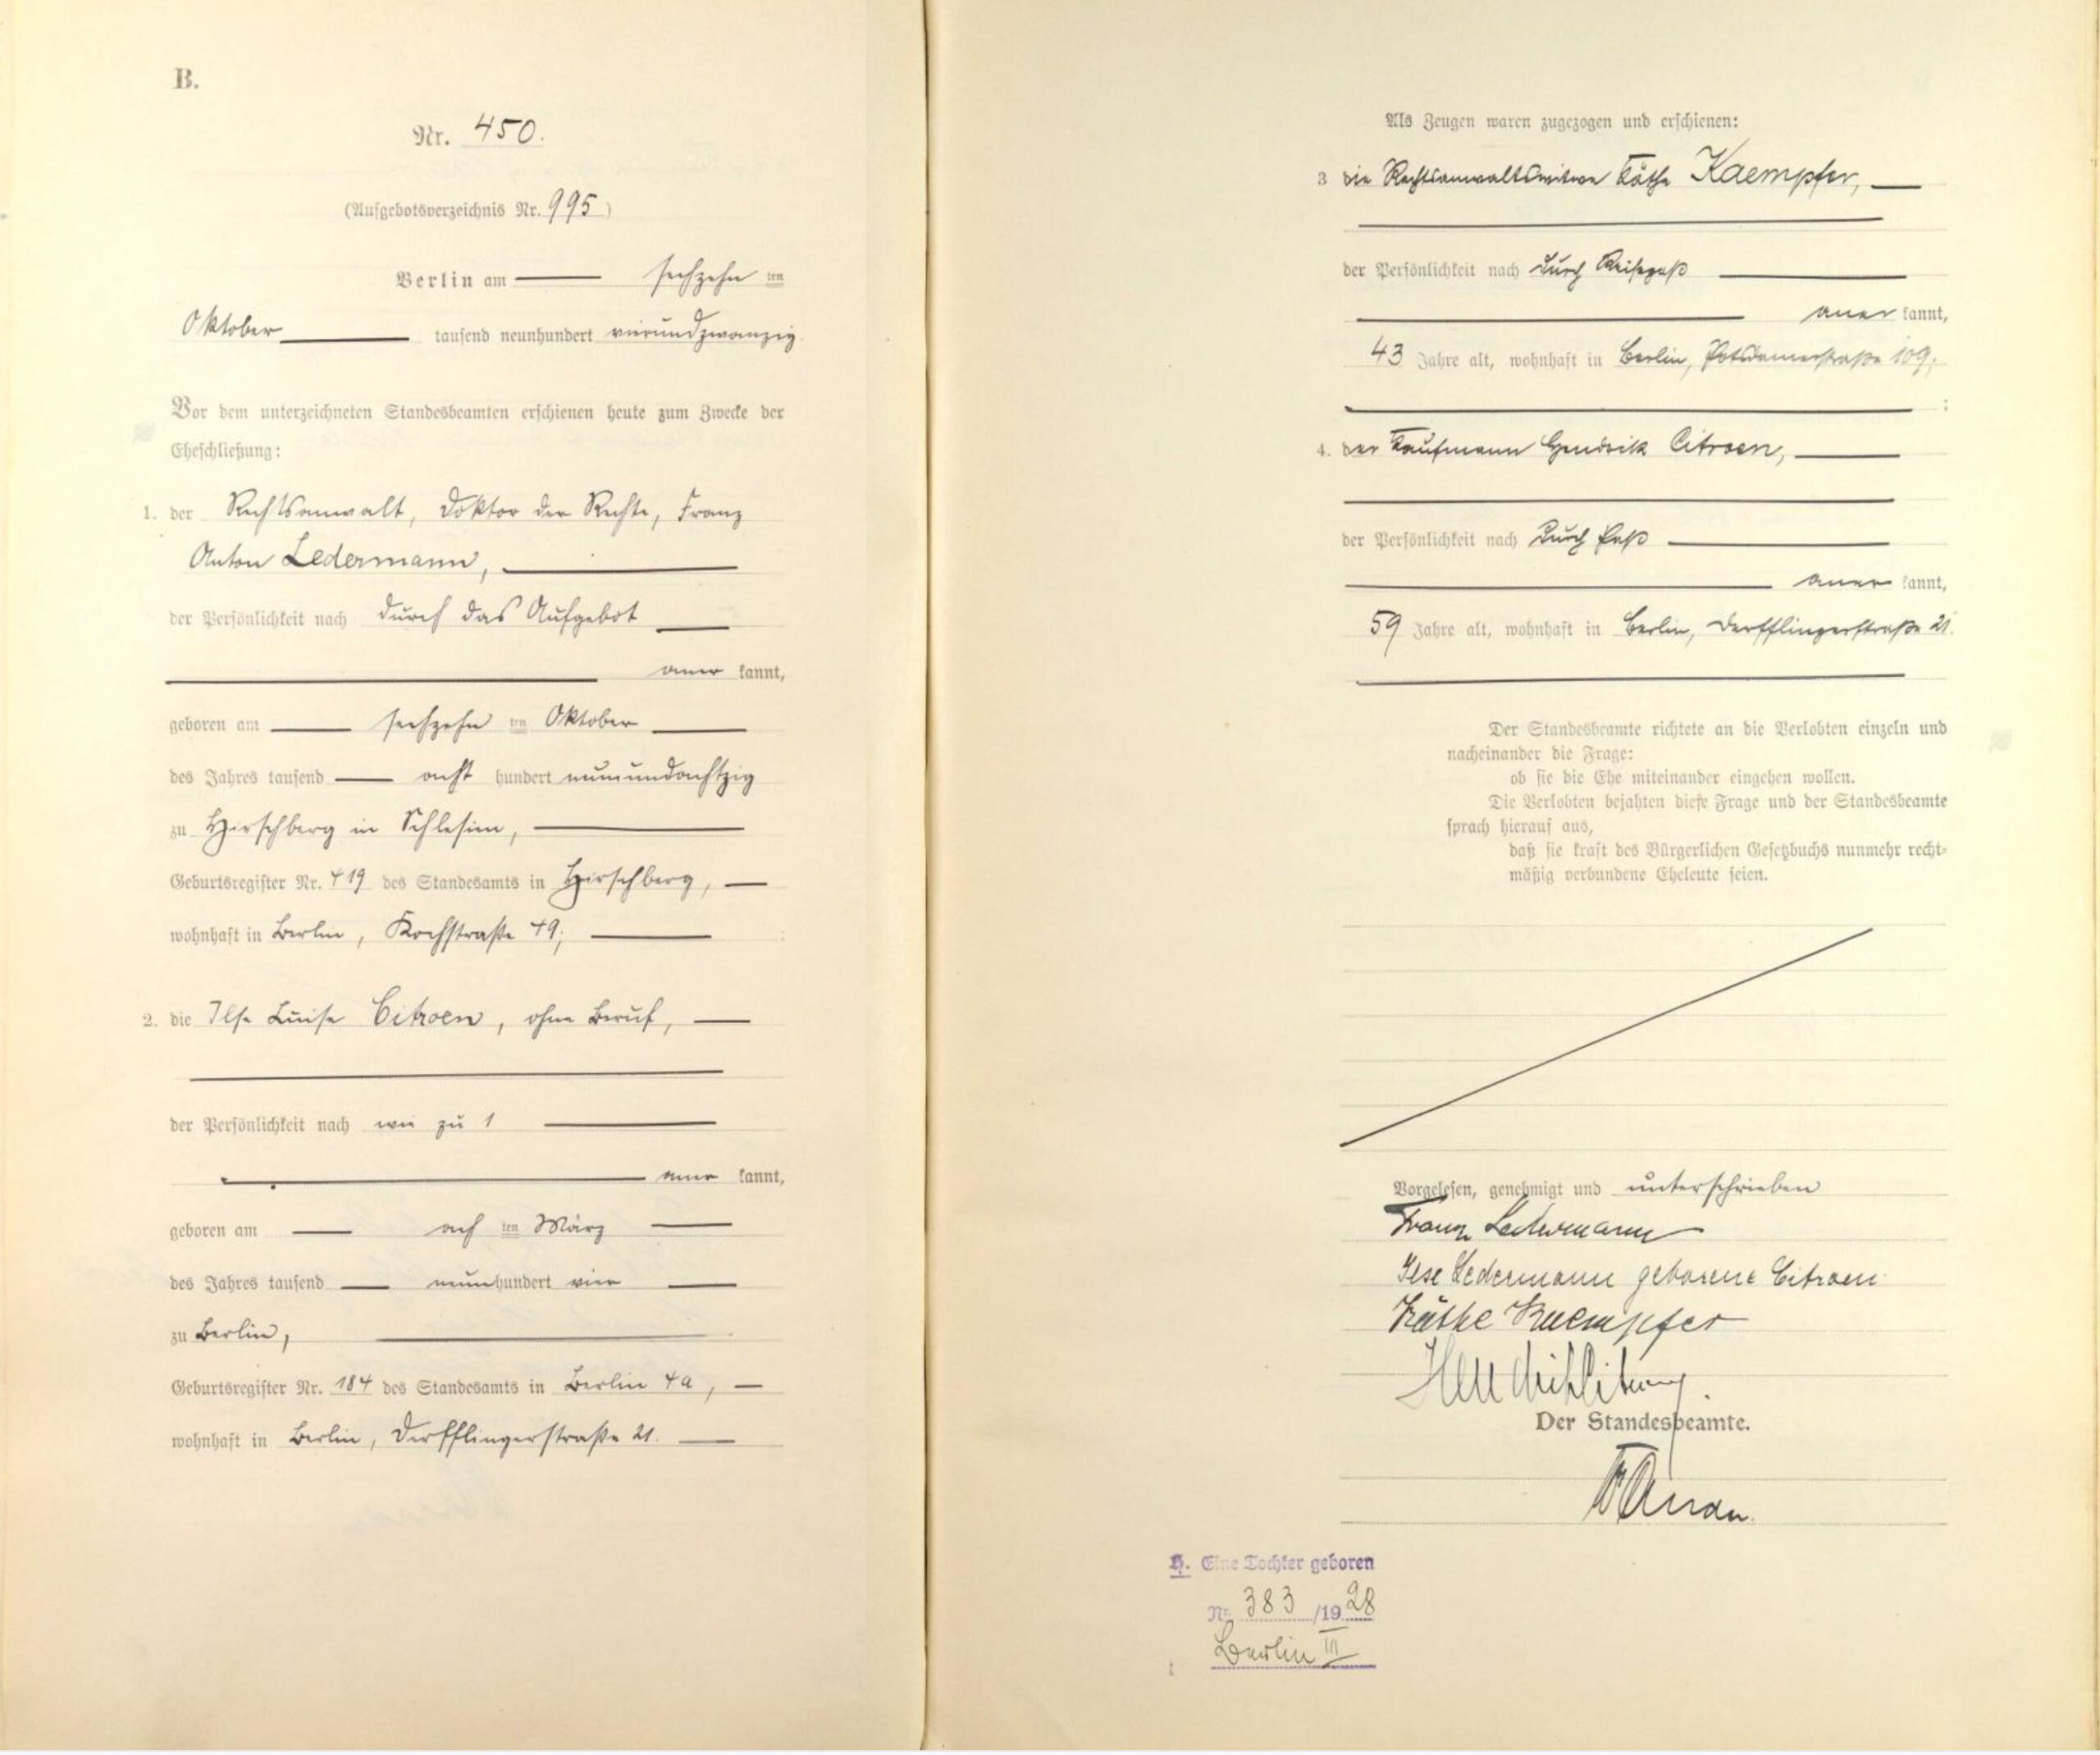 B.
Nr. 450.
(Aufgebotsverzeichnis Nr. 995)
Berlin am sechzehn ten
Oktober tausend neunhundert vierundzwanzig
Vor dem unterzeichneten Standesbeamten erschienen heute zum Zwecke der
Eheschließung:
1. der Rechtsanwalt, Doktor der Rechte, Franz
Anton Ledermann,
der Persönlichkeit nach durch das Aufgebot
aner kannt,
geboren am sechzehn ten Oktober
des Jahres tausend acht hundert neunundachtzig
zu Hirschberg in Schlesien,
Geburtsregister Nr. 419 des Standesamts in Hirschberg,
wohnhaft in Berlin, Kochstraße 49;
2. die Ilse Luise Citroen, ohne Beruf,
der Persönlichkeit nach wie zu 1
aner kannt,
geboren am ach ten März
des Jahres tausend neunhundert vier
zu Berlin,
Geburtsregister Nr. 184 des Standesamts in Berlin 4a,
wohnhaft in Berlin, Derfflingerstraße 21.
Als Zeugen waren zugezogen und erschienen:
3 die Rechtsanwaltswitwe Käthe Kaempfer,
der Persönlichkeit nach durch Reisepaß
aner kannt,
43 Jahre alt, wohnhaft in Berlin, Potsdamerstraße 109;
;
4. der Kaufmann Hendrik Citroen,
der Persönlichkeit nach durch Paß
aner kannt,
59 Jahre alt, wohnhaft in Berlin, Derfflingerstraße 21.
Der Standesbeamte richtete an die Verlobten einzeln und
nacheinander die Frage:
ob sie die Ehe miteinander eingehen wollen.
Die Verlobten bejahten diese Frage und der Standesbeamte
sprach hierauf aus,
daß sie kraft des Bürgerlichen Gesetzbuchs nunmehr recht-
mäßig verbundene Eheleute seien.
Vorgelesen, genehmigt und unterschrieben
Franz Ledermann
Ilse Ledermann geborene Citroen
Käthe Kaempfer
Der Standesbeamte.
H. Eine Tochter geboren
Nr. 383 /19 28
Berlin III